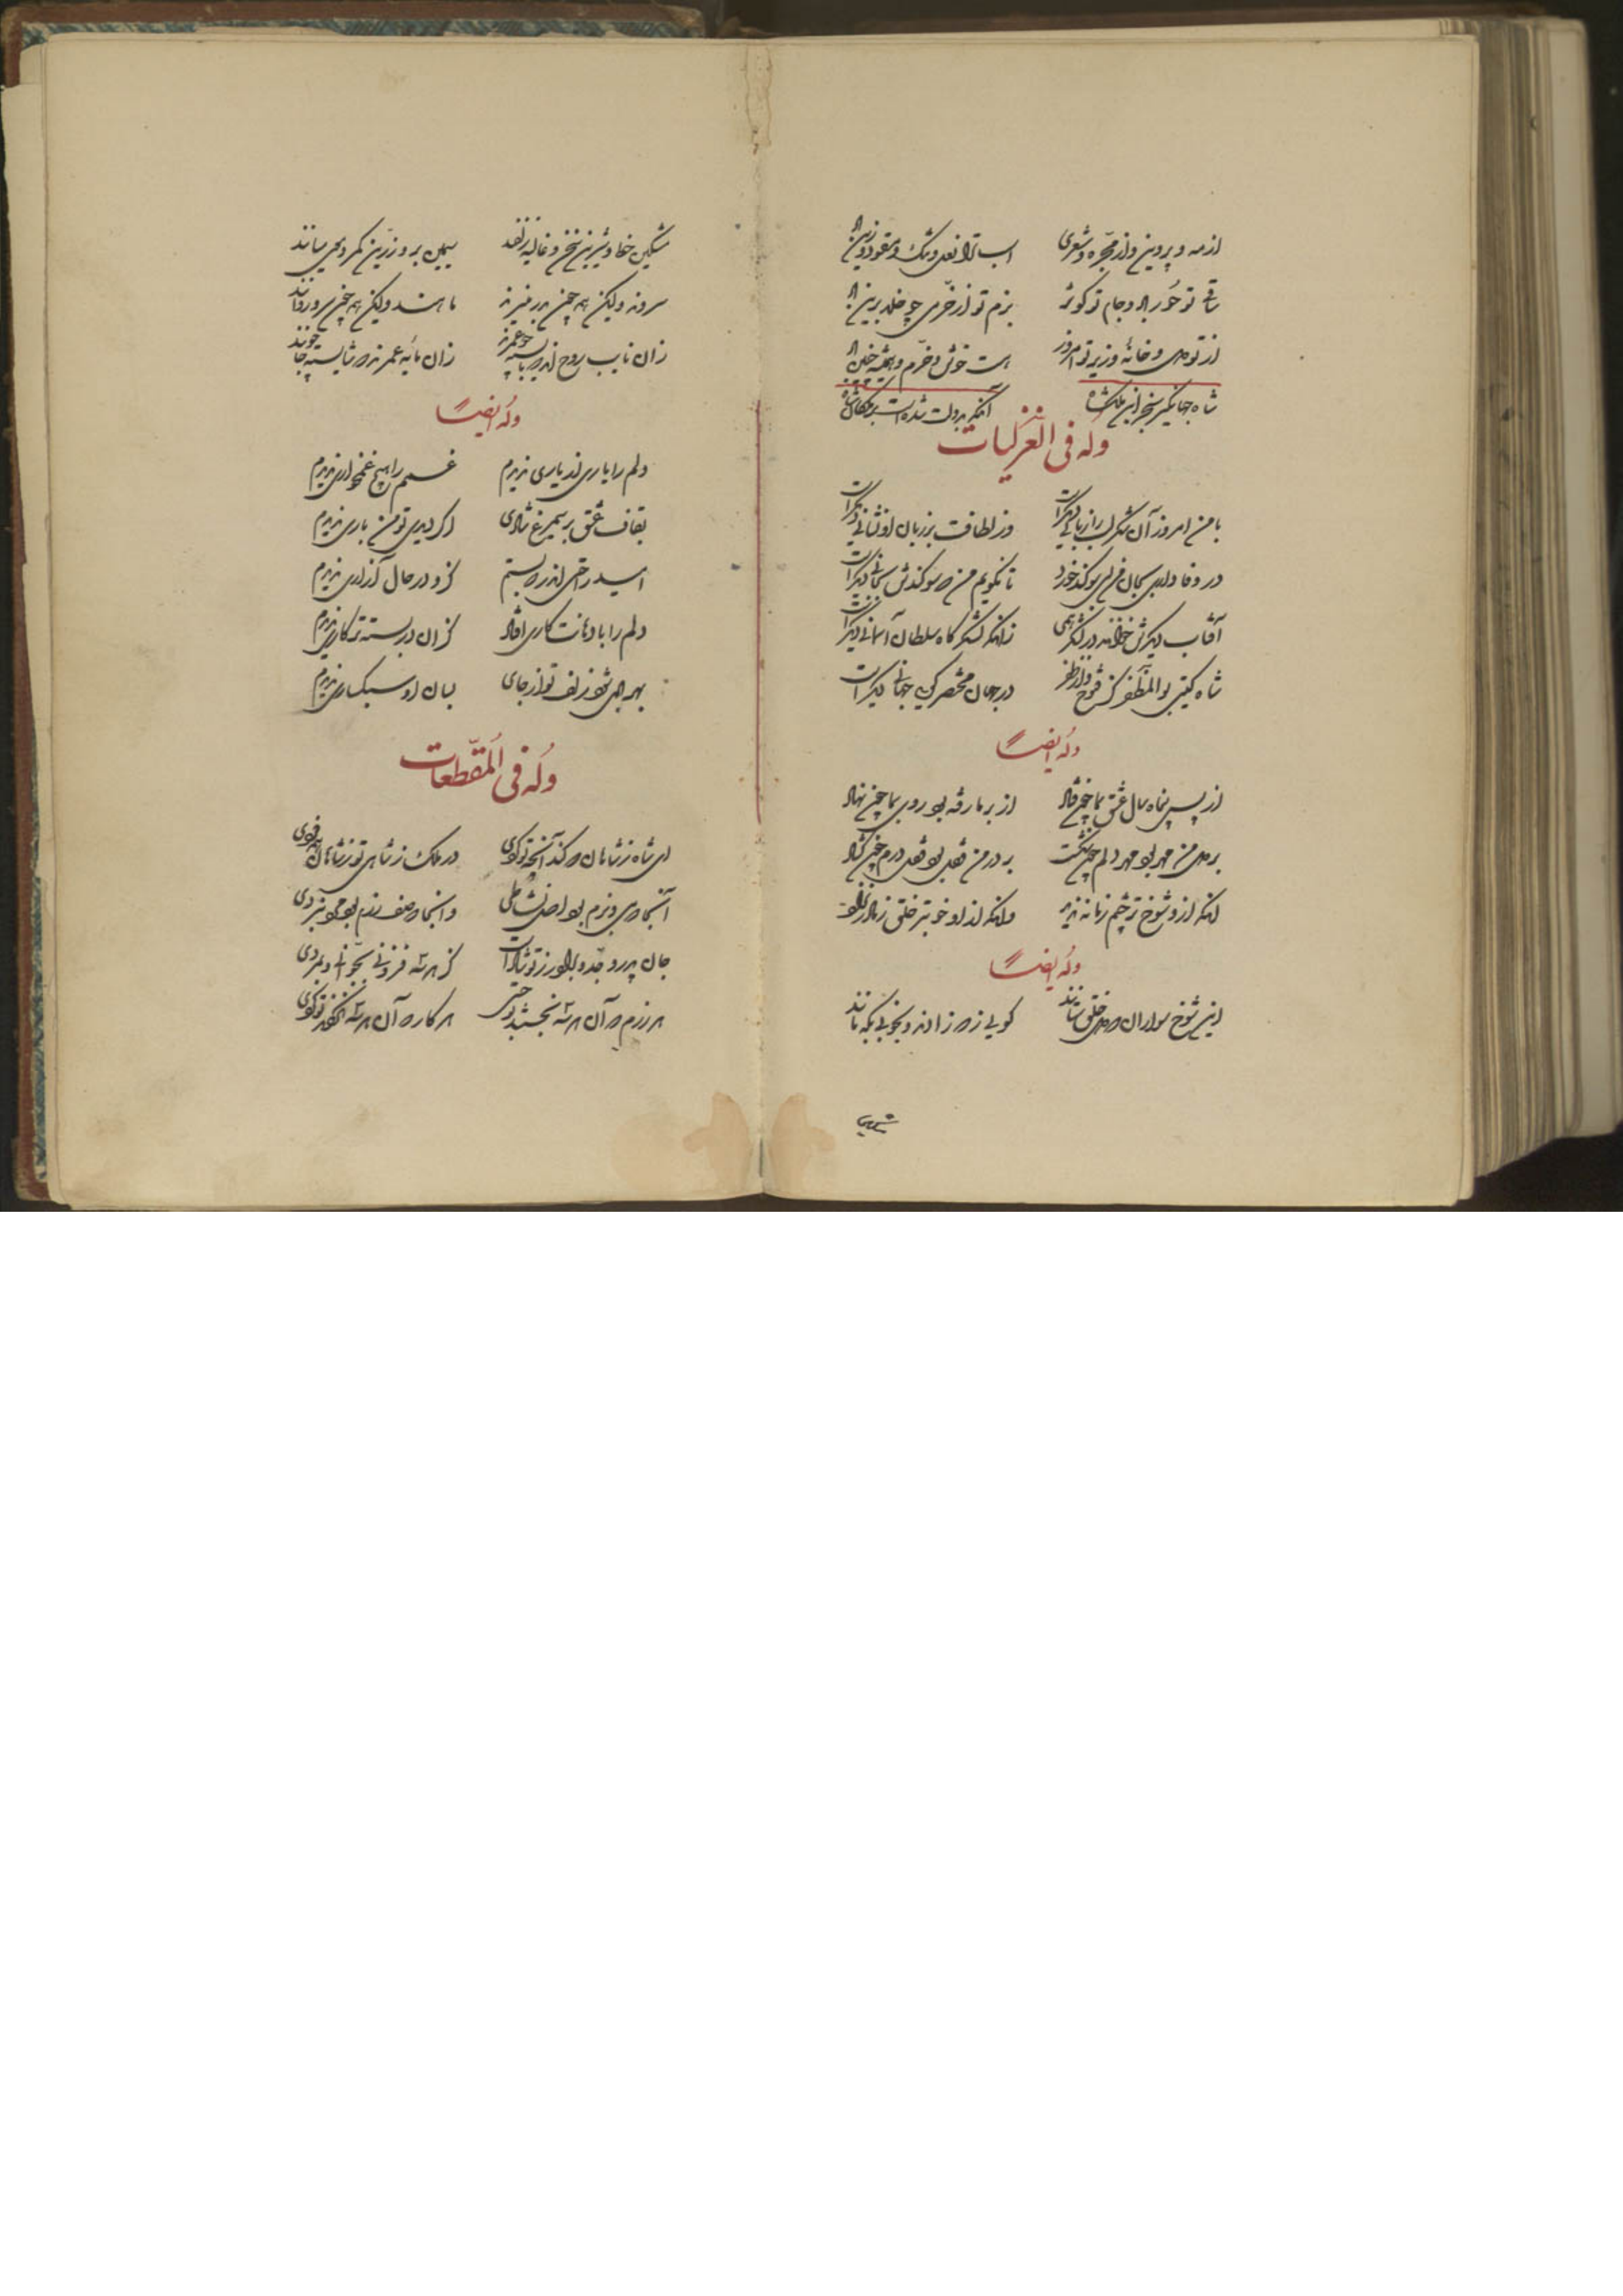 از مه و پروین و از مجره و شعری اسب ترا نعل و تنگ و مقود و زین باد
ساقی تو حور باد و جام تو کوثر بزم تو از خرمی چو خلد برین باد
از تو دل و خانهٔ وزیر تو امروز هست خوش و خرم و همیشه چنین باد
شاه جهانگیر سنجر ابن ملکشاه آنکه بدولت شده است بر ملکان شاه
وله فی الغزلیات
با من امروز آن شکر لب را زبانی دیگر است وز لطافت بر زبان او نشانی دیگر است
در وفاداری بجان من همی سوگند خورد تا نگویم من که سوگندش بجانی دیگر است
آفتاب دیگرش خوانند در لشکر همی زانکه لشکرگاه سلطان آسمانی دیگر است
شاه گیتی بوالمظفر کز فتوح و از ظفر در جهان مختصر گویی جهانی دیگر است
وله ایضاً
از پس پنجاه سال عشق بما چون فتاد از بر ما رفته بود روی بما چون نهاد
بر دل من مهر بود مهر دلم چون شکست بر در من قفل بود قفل درم چون گشاد
آنکه ازو شوخ تر چشم زمانه ندید وانکه ازو خوبتر خلق ز مادر نزاد
وله ایضاً
این شوخ سواران که دل خلق ستانند گویی ز که زادند و بخوبی بکه مانند
مشکین
مشکین خط و شیرین سخن و غالیه زلفند سیمین بر و زرین کمر و موی میانند
سروند ولیکن همه چون بدر منیرند ماهند ولیکن همه چون سرو روانند
زان نایب روحند که بایسته چو عمرند زان مایه عمرند که شایسته چو جانند
وله ایضاً
دلم را یاری از یاری ندیدم غمم را هیچ غمخواری ندیدم
بقاف عشق بر سیمرغ شادی اگر دیدی تو من باری ندیدم
امید راحتی اندر که بستم کزو در حال آزاری ندیدم
دلم را با دهانت کاری افتاد کزان در بسته تر کاری ندیدم
بهر جان شد ز لف تو از جای بسان او سبکساری ندیدم
وله فی المقطعات
ای شاه ز شاهان که کند آنچه تو کردی در ملک ز شاهی تو ز شاهان همه فردی
آنجا که می و بزم بود اصل نشاطی وانجا که صف رزم بود محو نبردی
جان پدر و جد و برادر ز تو شاد است کز هر سه فزونی بجوانی و بمردی
هر رزم که آن هر سه نجستند تو جستی هر کار که آن هر سه نکردند تو کردی